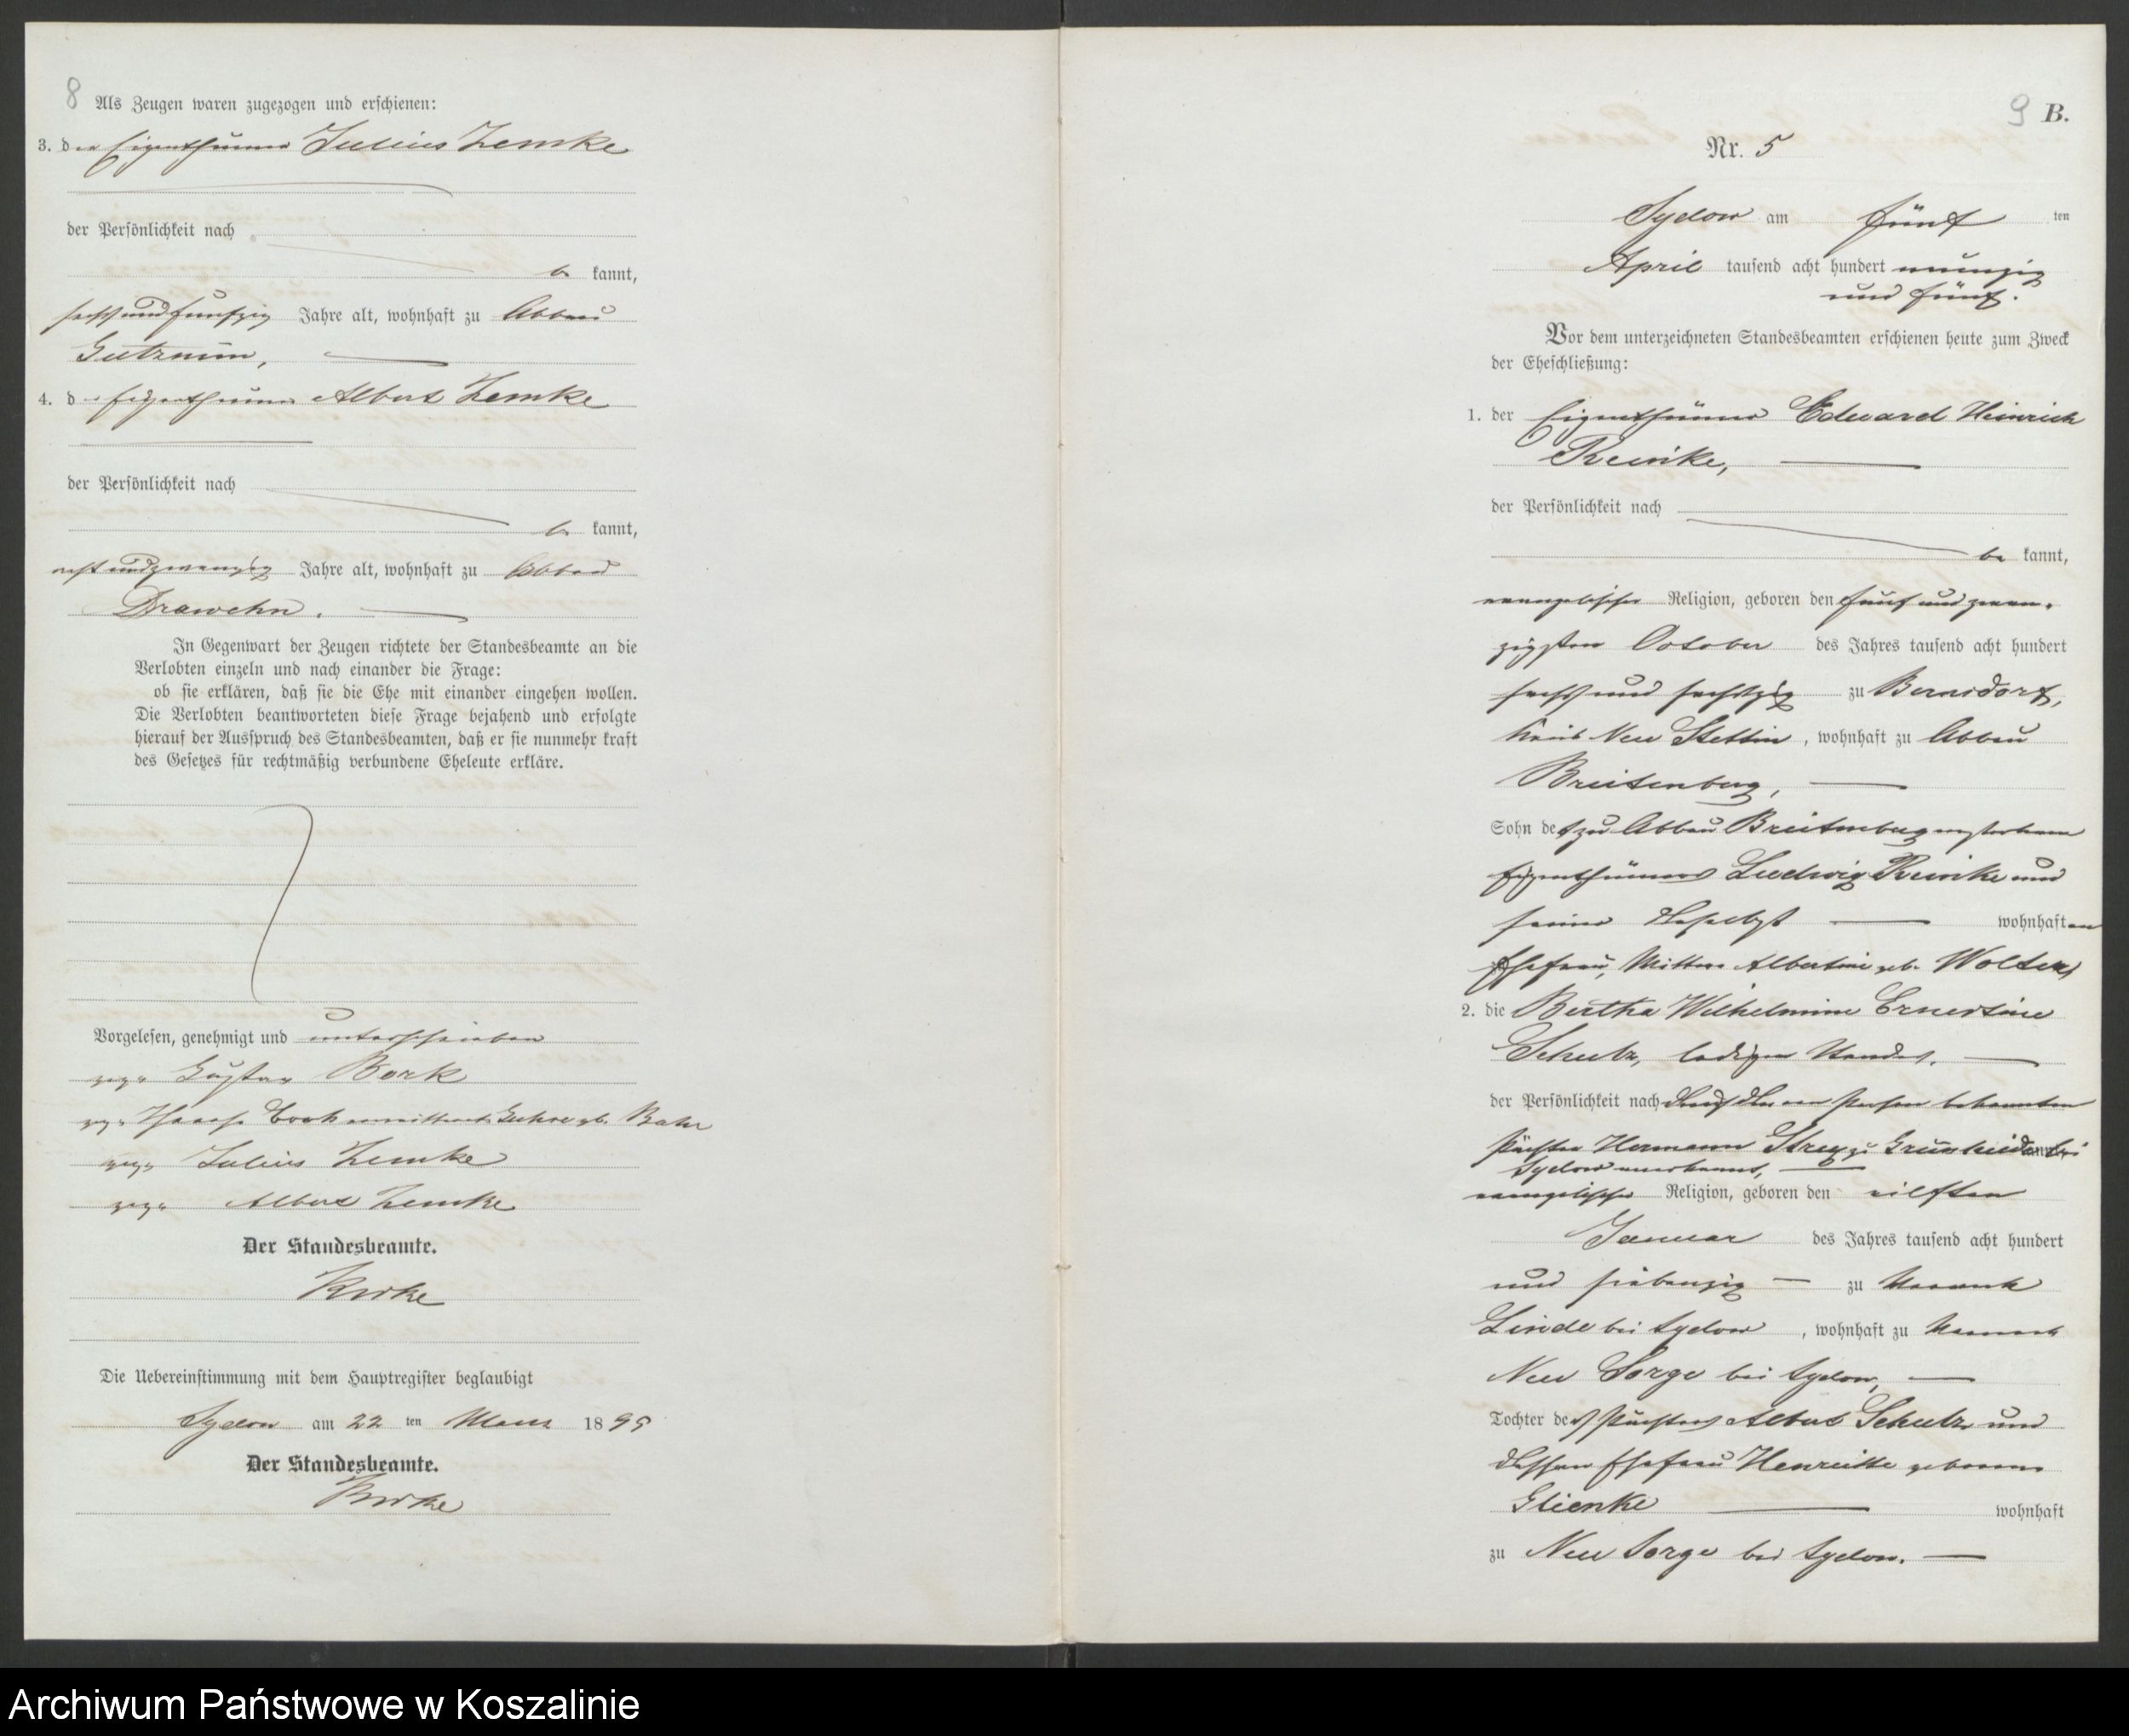 8 Als Zeugen waren zugezogen und erschienen:
3. der Eigenthümer Julius Zemke
der Persönlichkeit nach
be kannt,
sechsundfunfzig Jahre alt, wohnhaft zu Abbau
Gutzmin,
4. der Eigenthümer Albert Zemke
der Persönlichkeit nach
be kannt,
achtundzwanzig Jahre alt, wohnhaft zu Abbau
Drawehn.
In Gegenwart der Zeugen richtete der Standesbeamte an die
Verlobten einzeln und nach einander die Frage:
ob sie erklären, daß sie die Ehe mit einander eingehen wollen.
Die Verlobten beantworteten diese Frage bejahend und erfolgte
hierauf der Ausspruch des Standesbeamten, daß er sie nunmehr kraft
des Gesetzes für rechtmäßig verbundene Eheleute erkläre.
Vorgelesen, genehmigt und unterschrieben
gez. Gustav Bork
gez. Bork geb.
gez. Julius Zemke
gez. Albert Zemke
Der Standesbeamte.
Die Uebereinstimmung mit dem Hauptregister beglaubigt
Sydow am 22 ten März 1895
Der Standesbeamte.
9 B.
Nr. 5
Sydow am fünf ten
April tausend acht hundert neunzig
und fünf.
Vor dem unterzeichneten Standesbeamten erschienen heute zum Zweck
der Eheschließung:
1. der Eigenthümer Eduard Heinrich
Reinke,
der Persönlichkeit nach
be kannt,
evangelischer Religion, geboren den fünfundzwan-
zigsten October des Jahres tausend acht hundert
sechs und sechszig zu Bernsdorf,
Kreis Neu Stettin, wohnhaft zu Abbau
Breitenberg,
Sohn des zu Abbau Breitenberg verstorbenen
Eigenthümers Ludwig Reinke und
seiner daselbst wohnhaften
Ehefrau, Wittwe Albertine geb. Wolter,
2. die Bertha Wilhelmine Ernestine
Schulz, ledigen Standes,
der Persönlichkeit nach durch den von Person bekannten
Pächter Hermann Strey zu Grünheide bei
Sydow anerkannt,
evangelischer Religion, geboren den eilften
Januar des Jahres tausend acht hundert
und siebenzig zu Vorwerk
Linde bei Sydow, wohnhaft zu Vorwerk
Neu Sorge bei Sydow,
Tochter des Pächters Albert Schulz und
dessen Ehefrau Henriette geborene
Glienke wohnhaft
zu Neu Sorge bei Sydow.
Archiwum Państwowe w Koszalinie